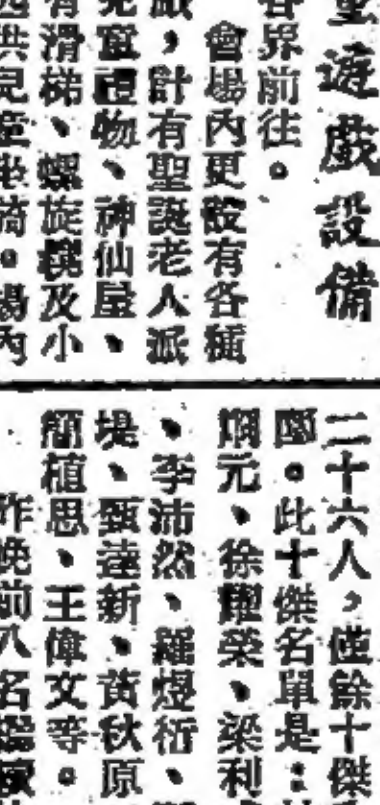 童遊戲設備
各界前往。
會場內更設有各種
戲，計有聖誕老人派
兒童禮物、神仙屋、
有滑梯、螺旋櫈及小
四供兒童坐騎。場內
二十六人，僅餘十傑
此十傑名單是：
元、徐耀榮、梁利
、李沛然、羅煜衍、
堤、甄達新、黃秋原
簡植思、王偉文等。
昨晚前八名